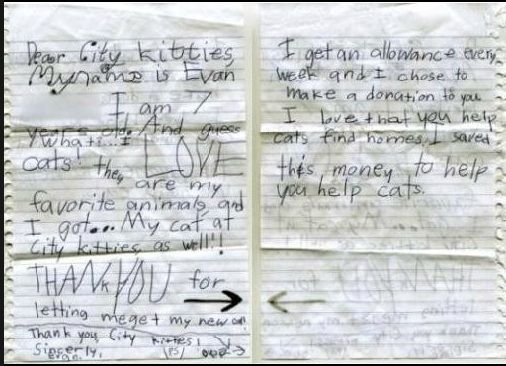 Dear City kitties,
My name is Evan
I am 7
years old. And guess
what!...I LOVE
cats! they
are my
favorite animals and
I got... My cat at
City kitties as well!!
THANK YOU for
letting me get my new cat!
Thank you, City kitties!
Sincerly,
Evan. (PS)
I get an allowance every
week and I chose to
make a donation to you.
I love that you help
cats find homes. I saved
this money to help
you help cats.